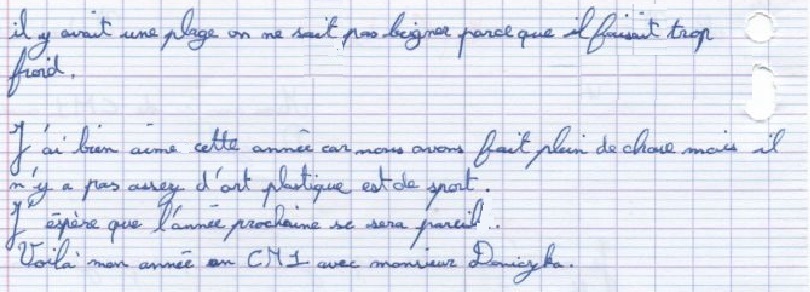 il y avait une plage on ne sait pas beigner parce que il faisait trop
froid.
J'ai bien aimé cette année car nous avons fait plein de chose mais il
n'y a pas assez d'art plastique est de sport.
J'éspère que l'année prochaine se sera pareil.
Voilà mon année en CM1 avec monsieur